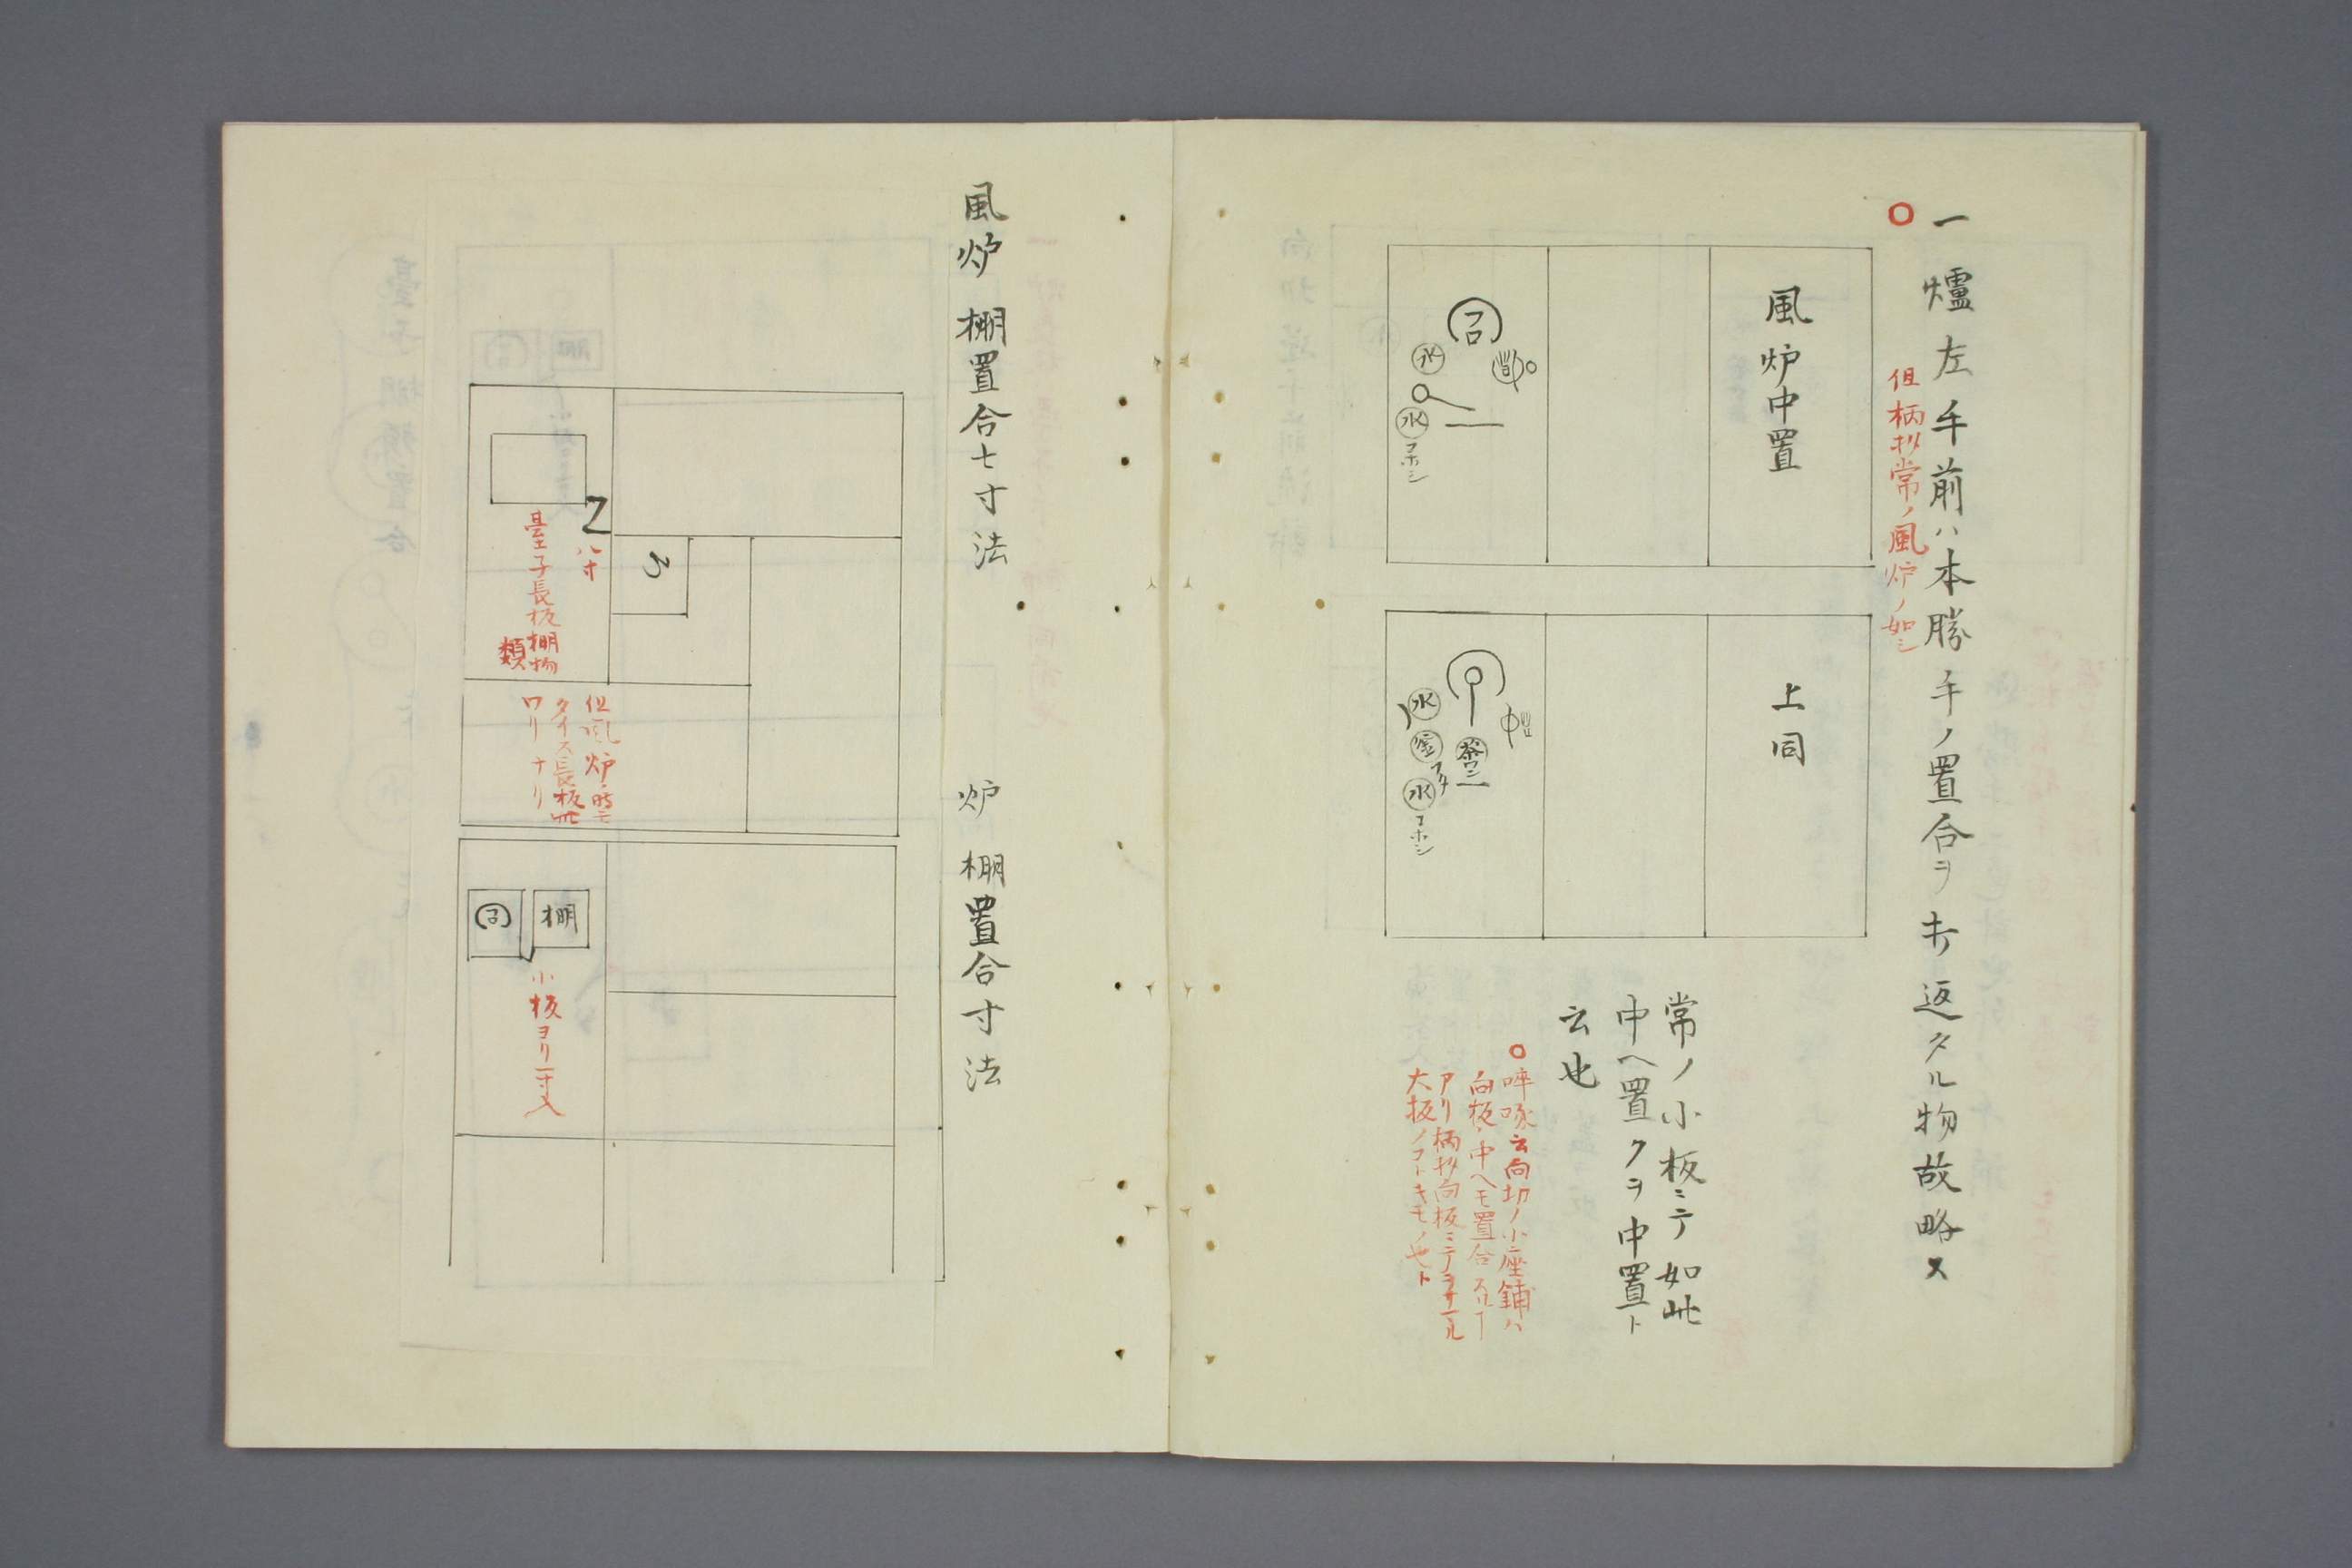 一爐左手前ハ本勝手ノ置合ヲ打返タル物故略ス
但柄杓常ノ風炉ノ如シ
風炉中置
水
水
コホシ
上同
水
釜
フタ
茶ワン
水
コホシ
常ノ小板ニテ如此
中ヘ置クヲ中置ト
云也
啐啄云向切ノ小座鋪ハ
向板ノ中ヘモ置合スル
アリ柄杓向板ニテ
大板ノコトキモノ也ト
風炉棚置合七寸法
炉棚置合寸法
八寸
臺子長板棚物
類
ろ
但風炉ノ時モ
タイス長板此
ワリナリ
棚
小板ヨリ一寸入